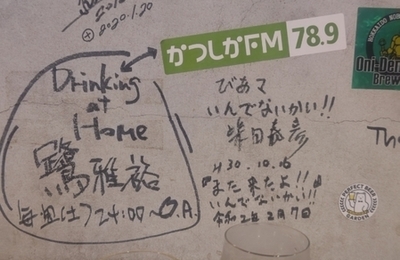 2020.1.20
かつしかFM 78.9
Drinking
at
Home
鷺雅裕
毎週(土)24:00〜O.A.
びあマ
いんでないかい!!
柴田義彦
H30.10.16
『また来たよ!!』
いんでないかい!!
令和2年2月7日
HOKKAIDO
PERFECT BEER
GARDEN